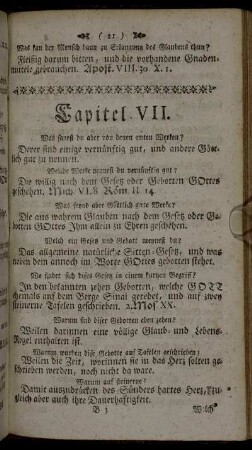 ( 21 )
Was kan der Mensch dann zu Erlangung des Glaubens thun?
Fleissig darum bitten, und die vorhandene Gnaden-
mittele gebrauchen. Apost. VIII. 30. X. 1.
Capitel VII.
Was sagst du aber von denen guten Wercken?
Derer sind einige vernünftig gut, und andere Gött-
lich gut zu nennen.
Welche Wercke nennest du vernünftig gut?
Die willig nach dem Gesetz oder Gebotten GOttes
geschehen. Mich. VI. 8. Röm. II. 14.
Was seynd aber Göttlich gute Werck?
Die aus wahrem Glauben nach dem Gesetz oder Ge-
botten GOttes Ihm allein zu Ehren geschehen.
Welch ein Gesetz und Gebott nennest du?
Das allgemeine natürliche Sitten-Gesetz, und was
neben dem annoch im Worte GOttes gebotten stehet.
Wo findet sich dises Gesetz in einem kurtzen Begriff?
In den bekannten zehen Gebotten, welche GOTT
ehemals auf dem Berge Sinai geredet, und auf zwey
steinerne Tafelen geschrieben. 2. Mos. XX.
Warum sind diser Gebotten eben zehen?
Weilen darinnen eine völlige Glaub- und Lebens-
Regel enthalten ist.
Warum wurden dise Gebotte auf Tafelen geschrieben?
Weilen die Zeit, worinnen sie in das Hertz solten ge-
schrieben werden, noch nicht da ware.
Warum auf steinerne?
Damit auszudrücken des Sünders hartes Hertz, zu-
gleich aber auch ihre Dauerhaftigkeit.
B 3 Welch